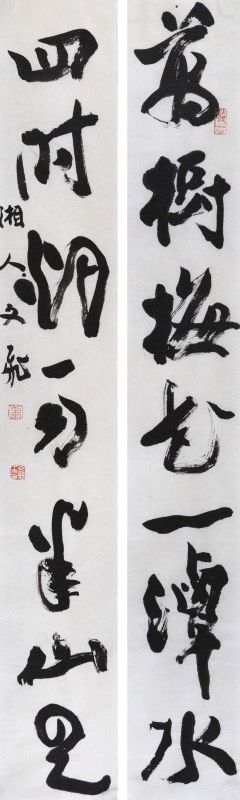 萬樹梅花一潭水
四時烟雨半山雲
湘人文飛